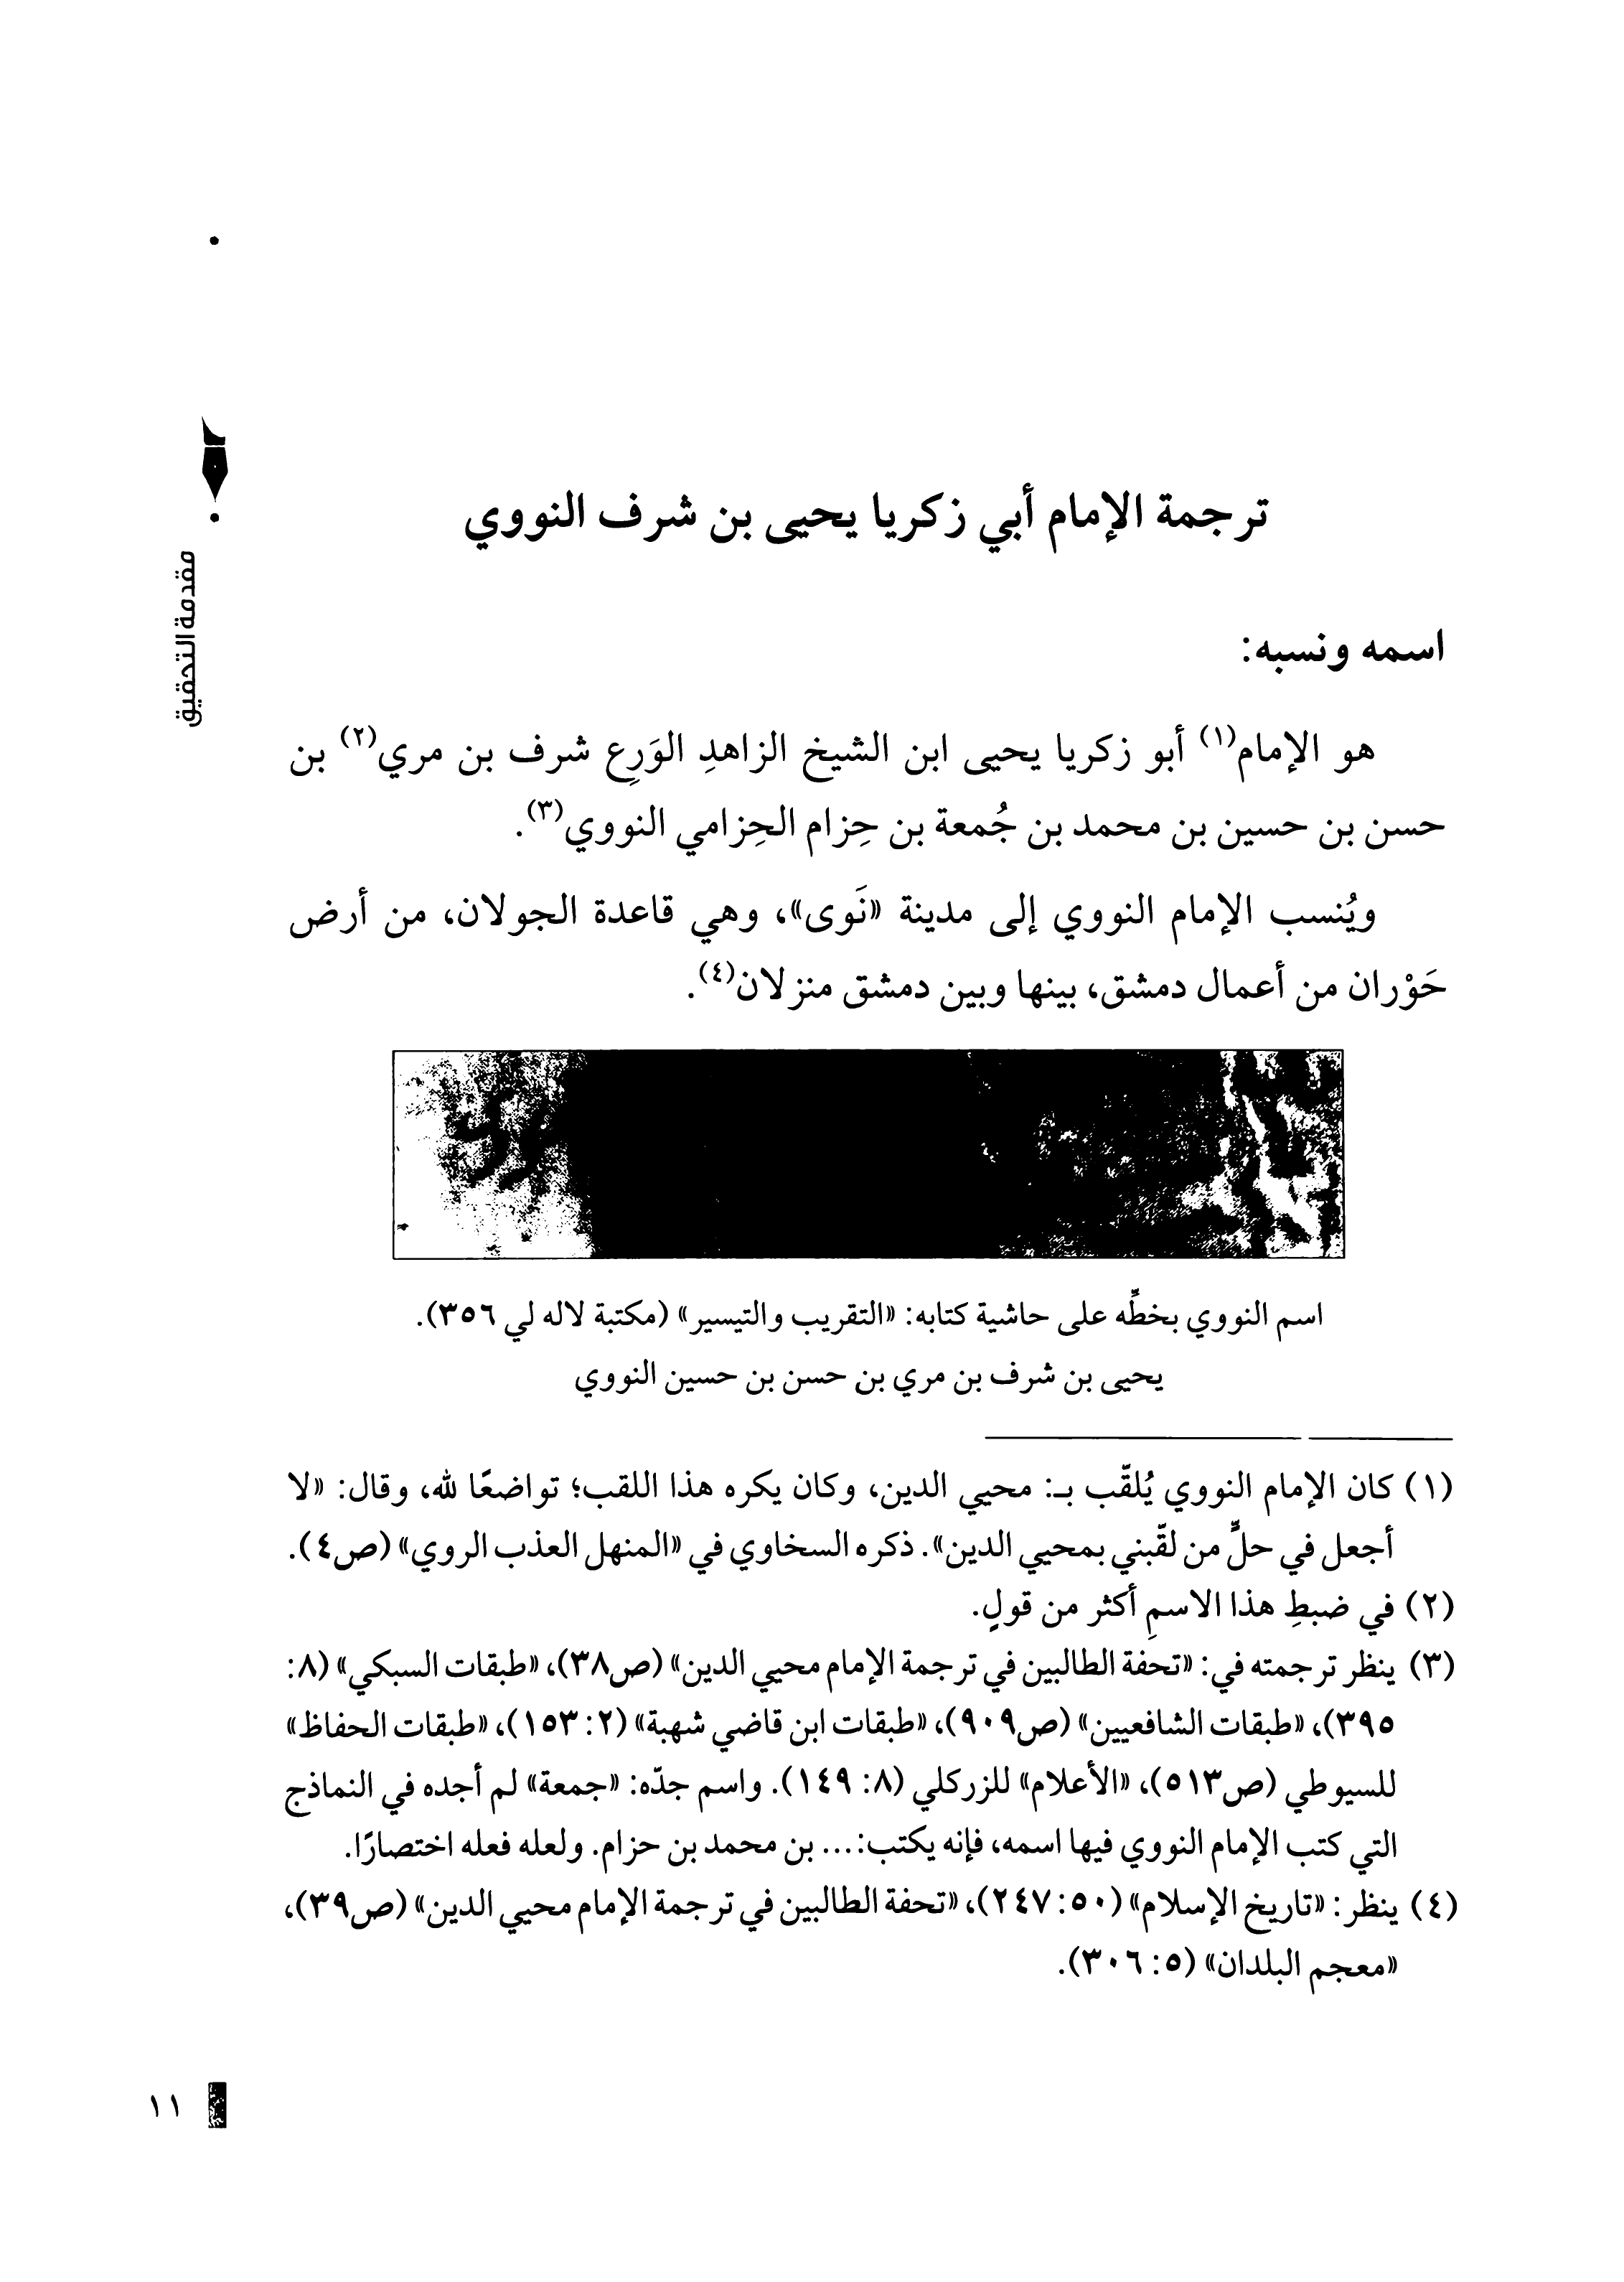 مقدمة التحقيق
ترجمة الإمام أبي زكريا يحيى بن شرف النووي
اسمه ونسبه:
هو الإمام(١) أبو زكريا يحيى ابن الشيخ الزاهدِ الوَرِع شرف بن مري(٢) بن
حسن بن حسين بن محمد بن جُمعة بن حِزام الحِزامي النووي(٣).
ويُنسب الإمام النووي إلى مدينة «نَوى»، وهي قاعدة الجولان، من أرض
حَوْران من أعمال دمشق، بينها وبين دمشق منزلان(٤).
اسم النووي بخطِّه على حاشية كتابه: «التقريب والتيسير» (مكتبة لاله لي ٣٥٦).
يحيى بن شرف بن مري بن حسن بن حسين النووي
(١) كان الإمام النووي يُلقّب بـ: محيي الدين، وكان يكره هذا اللقب؛ تواضعًا لله، وقال: «لا
أجعل في حلٍّ من لقّبني بمحيي الدين». ذكره السخاوي في «المنهل العذب الروي» (ص٤).
(٢) في ضبطِ هذا الاسمِ أكثر من قولٍ.
(٣) ينظر ترجمته في: «تحفة الطالبين في ترجمة الإمام محيي الدين» (ص٣٨)، «طبقات السبكي» (٨:
٣٩٥)، «طبقات الشافعيين» (ص٩٠٩)، «طبقات ابن قاضي شهبة» (٢: ١٥٣)، «طبقات الحفاظ»
للسيوطي (ص٥١٣)، «الأعلام» للزركلي (٨: ١٤٩). واسم جدّه: «جمعة» لم أجده في النماذج
التي كتب الإمام النووي فيها اسمه، فإنه يكتب:... بن محمد بن حزام. ولعله فعله اختصارًا.
(٤) ينظر: «تاريخ الإسلام» (٥٠: ٢٤٧)، «تحفة الطالبين في ترجمة الإمام محيي الدين» (ص٣٩)،
«معجم البلدان» (٥: ٣٠٦).
١١